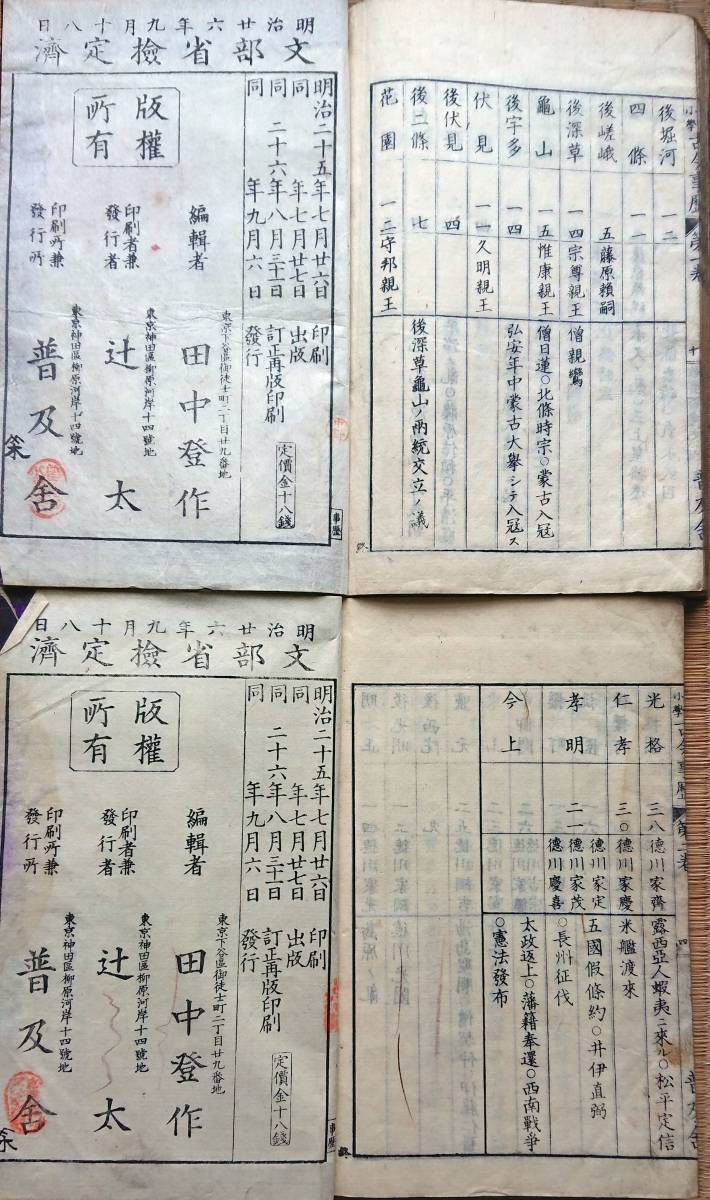 小學古今事歴 第一卷 十 普及舍
後堀河 一二
四條 一一
後嵯峨 五 藤原賴嗣
後深草 一四 宗尊親王 僧親鸞
龜山 一五 惟康親王 僧日蓮○北條時宗○蒙古入冦
後宇多 一四 弘安年中蒙古大擧シテ入冦ス
伏見 一一 久明親王
後伏見 四
後二條 七
花園 一二 守邦親王 後深草龜山ノ兩統交立ノ議
明治廿六年九月十八日
文部省檢定濟
明治二十五年七月廿六日印刷
同年七月廿七日出版
同二十六年八月三十一日訂正再版印刷
同年九月六日發行
定價金十八錢
東京下谷區御徒士町二丁目廿九番地
編輯者 田中登作
東京神田區柳原河岸十四號地
印刷者兼發行者 辻太
東京神田區柳原河岸十四號地
印刷所兼發行所 普及舍
版權所有
事歴
小學古今事歴 第二卷 普及舍
光格 三八 德川家齊 露西亞人蝦夷ニ來ル○松平定信
仁孝 三〇 德川家慶 米艦渡來
孝明 二一 德川家定 德川家茂 德川慶喜 五國假條約○井伊直弼○長州征伐
今上 太政返上○藩籍奉還○西南戰爭○憲法發布
明治廿六年九月十八日
文部省檢定濟
明治二十五年七月廿六日印刷
同年七月廿七日出版
同二十六年八月三十一日訂正再版印刷
同年九月六日發行
定價金十八錢
東京下谷區御徒士町二丁目廿九番地
編輯者 田中登作
東京神田區柳原河岸十四號地
印刷者兼發行者 辻太
東京神田區柳原河岸十四號地
印刷所兼發行所 普及舍
版權所有
事歴